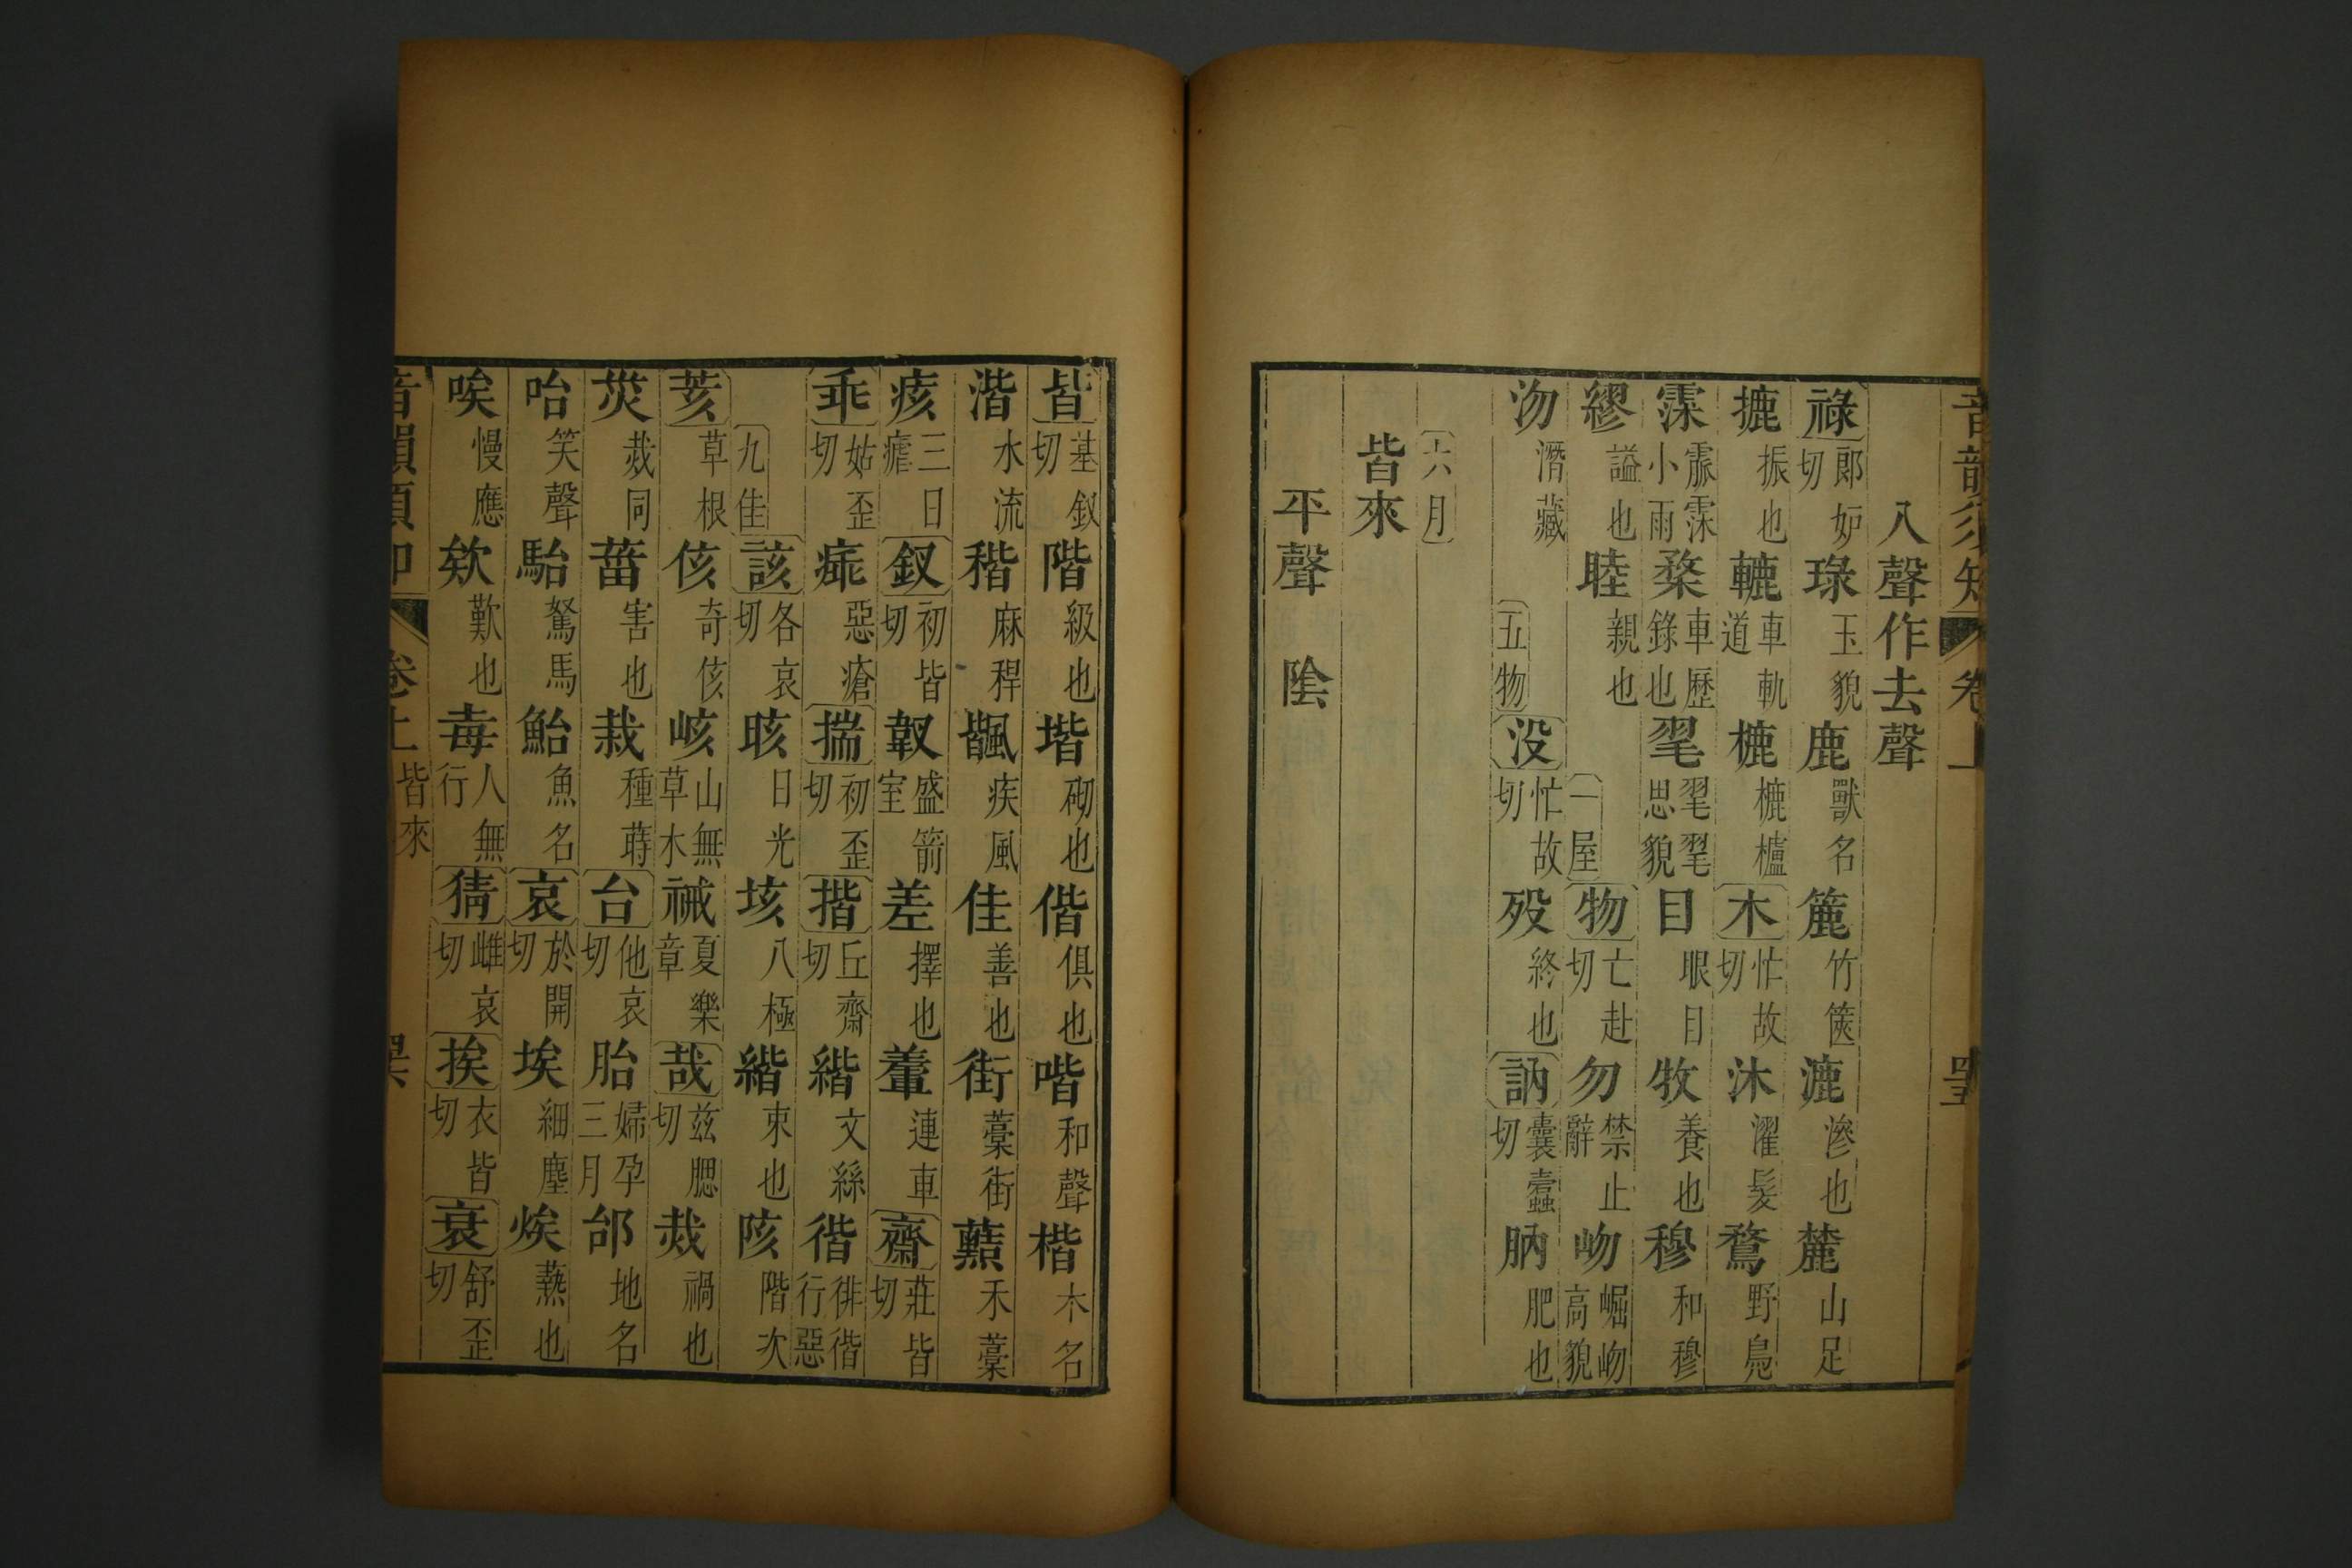 音韻須知 卷上
入聲作去聲
祿郎妒切琭玉貌鹿獸名簏竹篋漉滲也麓山足
摝振也轆車軌道樚樚櫨木忙故切沐濯髮鶩野鳧
霂霢霂小雨楘車歷錄也毣毣毣思貌目眼目牧養也穆和穆
繆謚也睦親也一屋物亡赴切勿禁止辭岉崛岉高貌
沕潛藏五物没忙故切歿終也訥囊蠹切肭肥也
六月
皆來
平聲 陰
皆基釵切階級也堦砌也偕俱也喈和聲楷木名
湝水流稭麻稈颽疾風佳善也街藁街藍禾藁
痎三日瘧釵初皆切靫盛箭室差擇也䡨連車齋莊皆切
乖姑歪切㾩惡瘡揣初歪切揩丘齋切緒文絲徣徘徣行惡
九佳該各哀切晐日光垓八極緒束也陔階次
荄草根侅奇侅峐山無草木祴夏樂章哉茲腮切烖禍也
災烖同葘害也栽種蒔台他哀切胎婦孕三月邰地名
咍笑聲駘駑馬鮐魚名哀於開切埃細塵焌爇也
唉慢應欸歎也毐人無行猜雌哀切挨衣皆切衰舒歪切
音韻須知 卷上 皆來